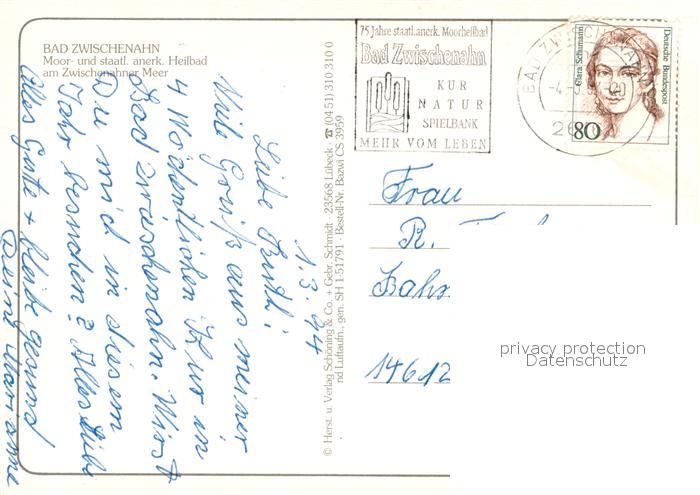 BAD ZWISCHENAHN
Moor- und staatl. anerk. Heilbad
am Zwischenahner Meer
1.3.94
Liebe Ruth!
Viele Grüße aus meiner
4 Wöchentlichen Kur in
Bad Zwischenahn. Wirst
Du mich in diesem
Jahr besuchen? Alles Liebe
Alles Gute + bleibe gesund
Deine Marianne
© Herst. u. Verlag Schöning & Co. + Gebr. Schmidt · 23568 Lübeck · ☎ (04 51) 310 310 0
nd Luftaufn., gen. SH 1-51791 · Bestell-Nr. Bazwi CS 3959
75 Jahre staatl. anerk. Moorheilbad
Bad Zwischenahn
KUR
NATUR
SPIELBANK
MEHR VOM LEBEN
BAD ZWISCHENAHN
Clara Schumann
Deutsche Bundespost
80
Frau
R.
Bahn
14612
privacy protection
Datenschutz